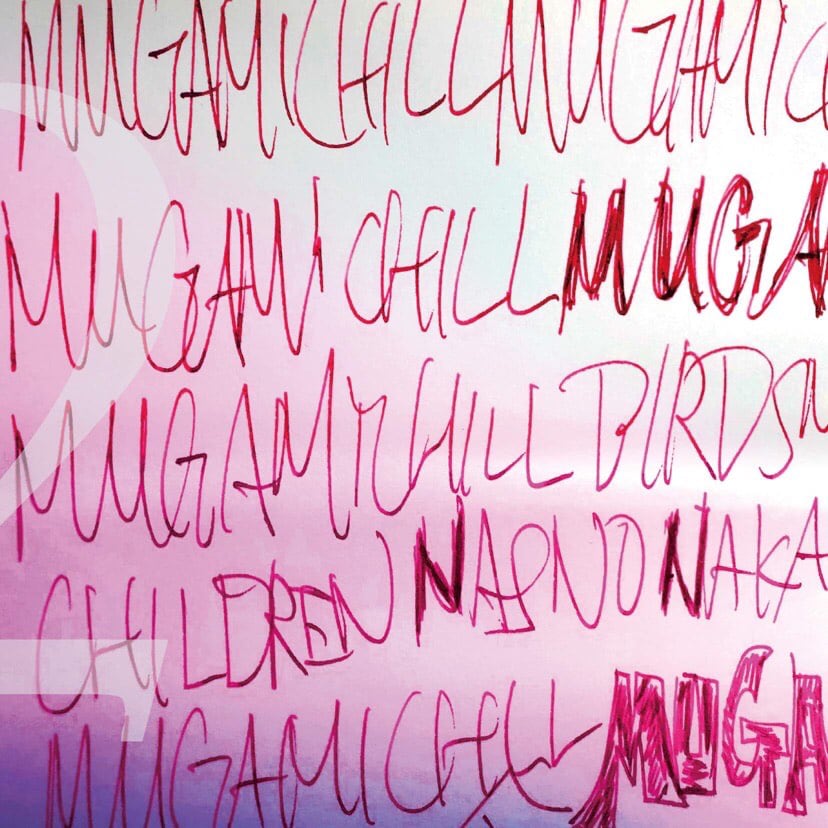 MUGAMICHILLMUGAMIC
MUGAMI CHILL MUGA
MUGAMYCHILL BIRDS
CHILDREN NAKA
MUGAMI CHILL MUGA